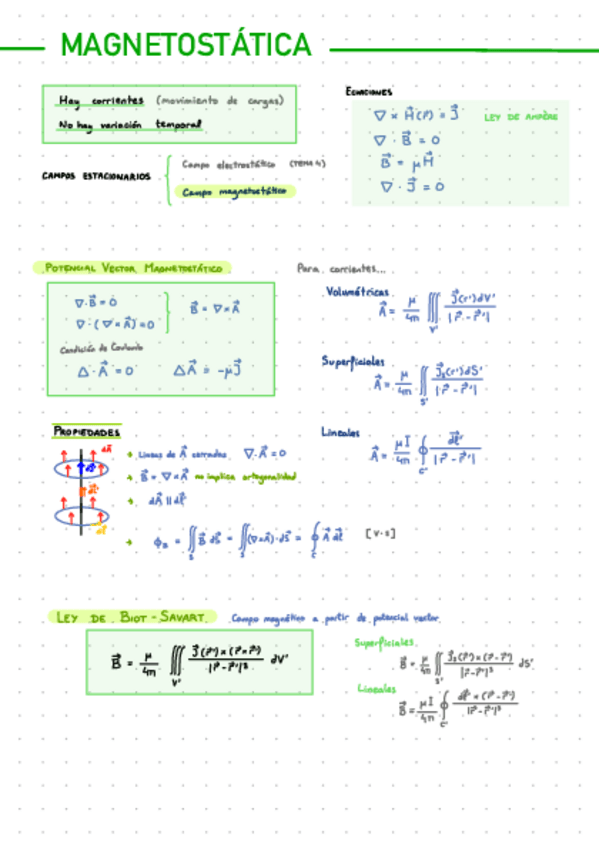 MAGNETOSTÁTICA
Hay corrientes (movimiento de cargas)
No hay variación temporal
CAMPOS ESTACIONARIOS
Campo electrostático (TEMA 4)
Campo magnetostático
ECUACIONES
∇ × H⃗(r⃗) = J⃗ LEY DE AMPÈRE
∇ · B⃗ = 0
B⃗ = μH⃗
∇ · J⃗ = 0
POTENCIAL VECTOR MAGNETOSTÁTICO
∇·B⃗ = 0
∇·(∇×A⃗) = 0
B⃗ = ∇×A⃗
Condición de Coulomb
Δ·A⃗ = 0 ΔA⃗ = -μJ⃗
Para corrientes...
Volumétricas
A⃗ = μ/4π ∭V' J⃗(r')dV'/|r⃗-r⃗'|
Superficiales
A⃗ = μ/4π ∬S' J⃗s(r')dS'/|r⃗-r⃗'|
Lineales
A⃗ = μI/4π ∮C' dl⃗'/|r⃗-r⃗'|
PROPIEDADES
dA⃗
→ Líneas de A⃗ cerradas ∇·A⃗ = 0
→ B⃗ = ∇×A⃗ no implica ortogonalidad
→ dA⃗ || dl⃗'
→ ϕB = ∬S B⃗ dS⃗ = ∬S (∇×A⃗)·dS⃗ = ∮C A⃗ dl⃗ [V·s]
LEY DE BIOT-SAVART. Campo magnético a partir de potencial vector.
B⃗ = μ/4π ∭V' J⃗(r⃗')×(r⃗-r⃗')/|r⃗-r⃗'|³ dV'
Superficiales
B⃗ = μ/4π ∬S' J⃗s(r⃗')×(r⃗-r⃗')/|r⃗-r⃗'|³ dS'
Lineales
B⃗ = μI/4π ∮C' dl⃗'×(r⃗-r⃗')/|r⃗-r⃗'|³